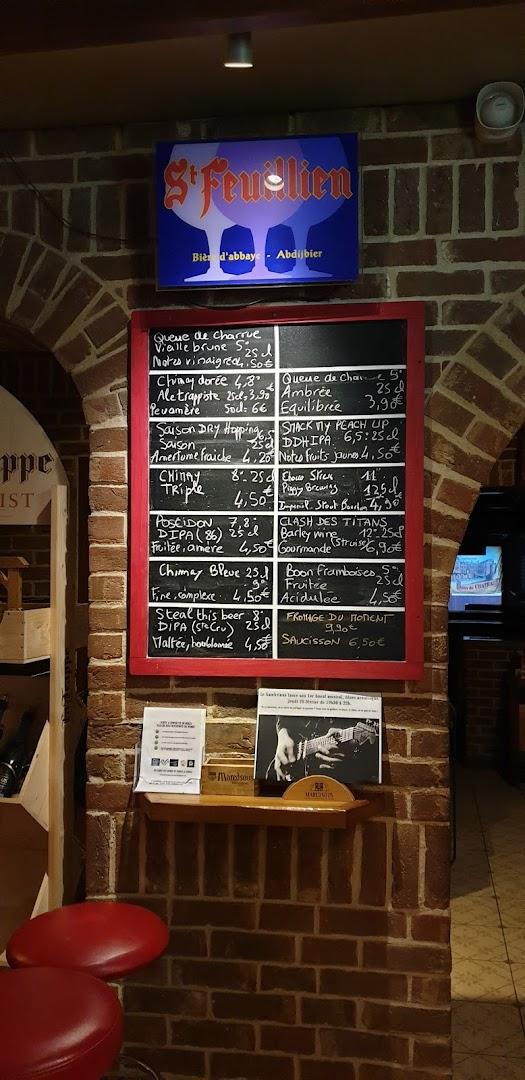 St Feuillien
Bière d'abbaye - Abdijbier
Queue de Charrue
Vieille brune 5°
25cl
Notes vinaigrées 4,50€
Chimay dorée 4,8°
Ale trappiste 25cl=3,90€
Peu amère 50cl=6€
Queue de Charrue 5°
Ambrée 25cl
Equilibrée 3,90€
Saison DRY Hopping
Saison 25cl
Amertume fraiche 4,20€
SMACK MY PEACH UP
DDHIPA. 6,5° 25cl
Notes fruits jaunes 4,50€
CHIMAY 8° 25cl
TRiple
4,50€
11°
Piggy Brewing 12,5cl
Imperial Stout Bourbon 4,90€
POSÉIDON 7,8°
DIPA (86) 25cl
Fruitée, amère 4,50€
CLASH DES TITANS
Barley wine 12° 25cl
(Struise)
Gourmande 6,90€
Chimay Bleue 25cl
9°
Fine, complexe 4,50€
Boon framboises 5°
Fruitée 25cl
Acidulée 4,50€
Steal this beer 8°
DIPA (Ste Cru) 25cl
Maltée, houblonnée 4,50€
FROMAGE DU MOMENT
9,90€
SAUCISSON 6,50€
ppe
IST
Maredsous
MAREDSOUS